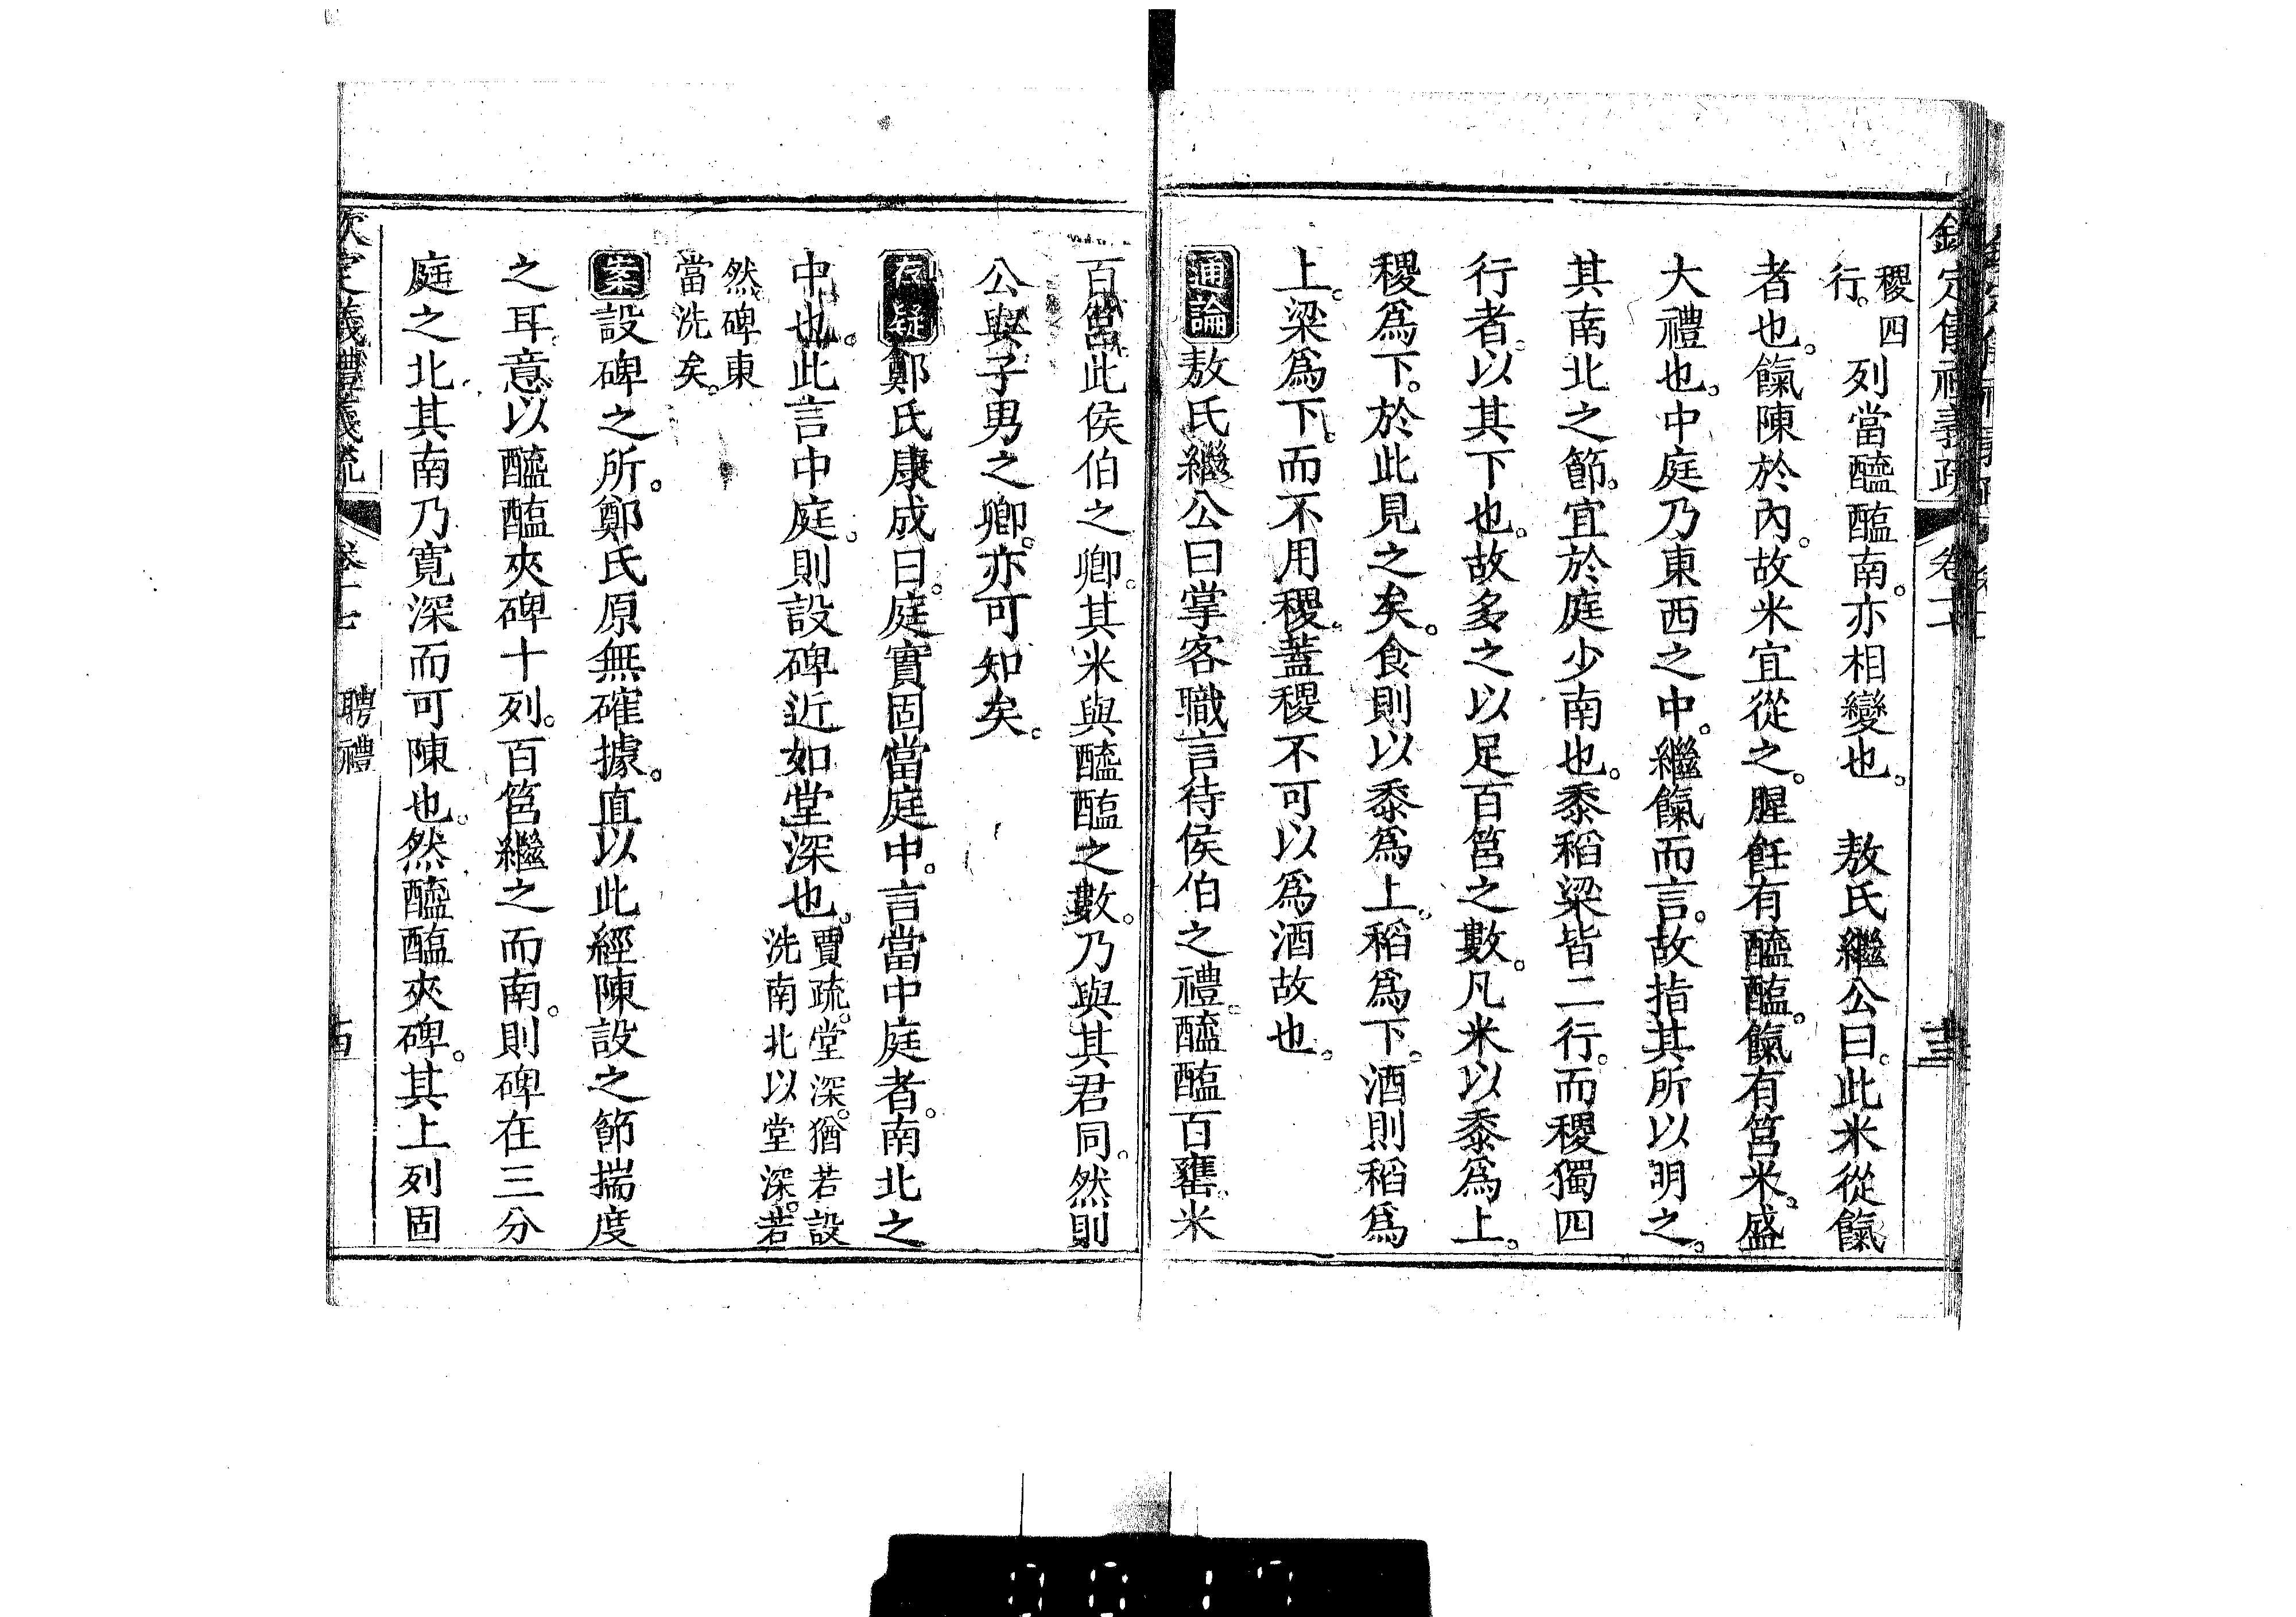 稷四
行。
列當醯醢南。亦相變也。　敖氏繼公曰。此米從餼
者也。餼陳於內。故米宜從之。腥飪有醯醢。餼有筥米。盛
大禮也。中庭乃東西之中。繼餼而言。故指其所以明之。
其南北之節。宜於庭少南也。黍稻粱皆二行。而稷獨四
行者。以其下也。故多之以足百筥之數。凡米以黍爲上。
稷爲下。於此見之矣。食則以黍爲上。稻爲下。酒則稻爲
上。粱爲下。而不用稷。蓋稷不可以爲酒故也。
通論敖氏繼公曰掌客職言待侯伯之禮。醯醢百罋。米
百筥。此侯伯之卿。其米與醯醢之數。乃與其君同。然則
公與子男之卿。亦可知矣。
存疑鄭氏康成曰。庭實固當庭中。言當中庭者。南北之
中也。此言中庭。則設碑近如堂深也。
賈疏。堂深。猶若設
洗南北以堂深。若
然碑東
當洗矣。
案設碑之所。鄭氏原無確據。直以此經陳設之節揣度
之耳。意以醯醢夾碑十列。百筥繼之而南。則碑在三分
庭之北其南乃寬深而可陳也。然醯醢夾碑。其上列固
欽定義禮義疏
卷十七
聘禮